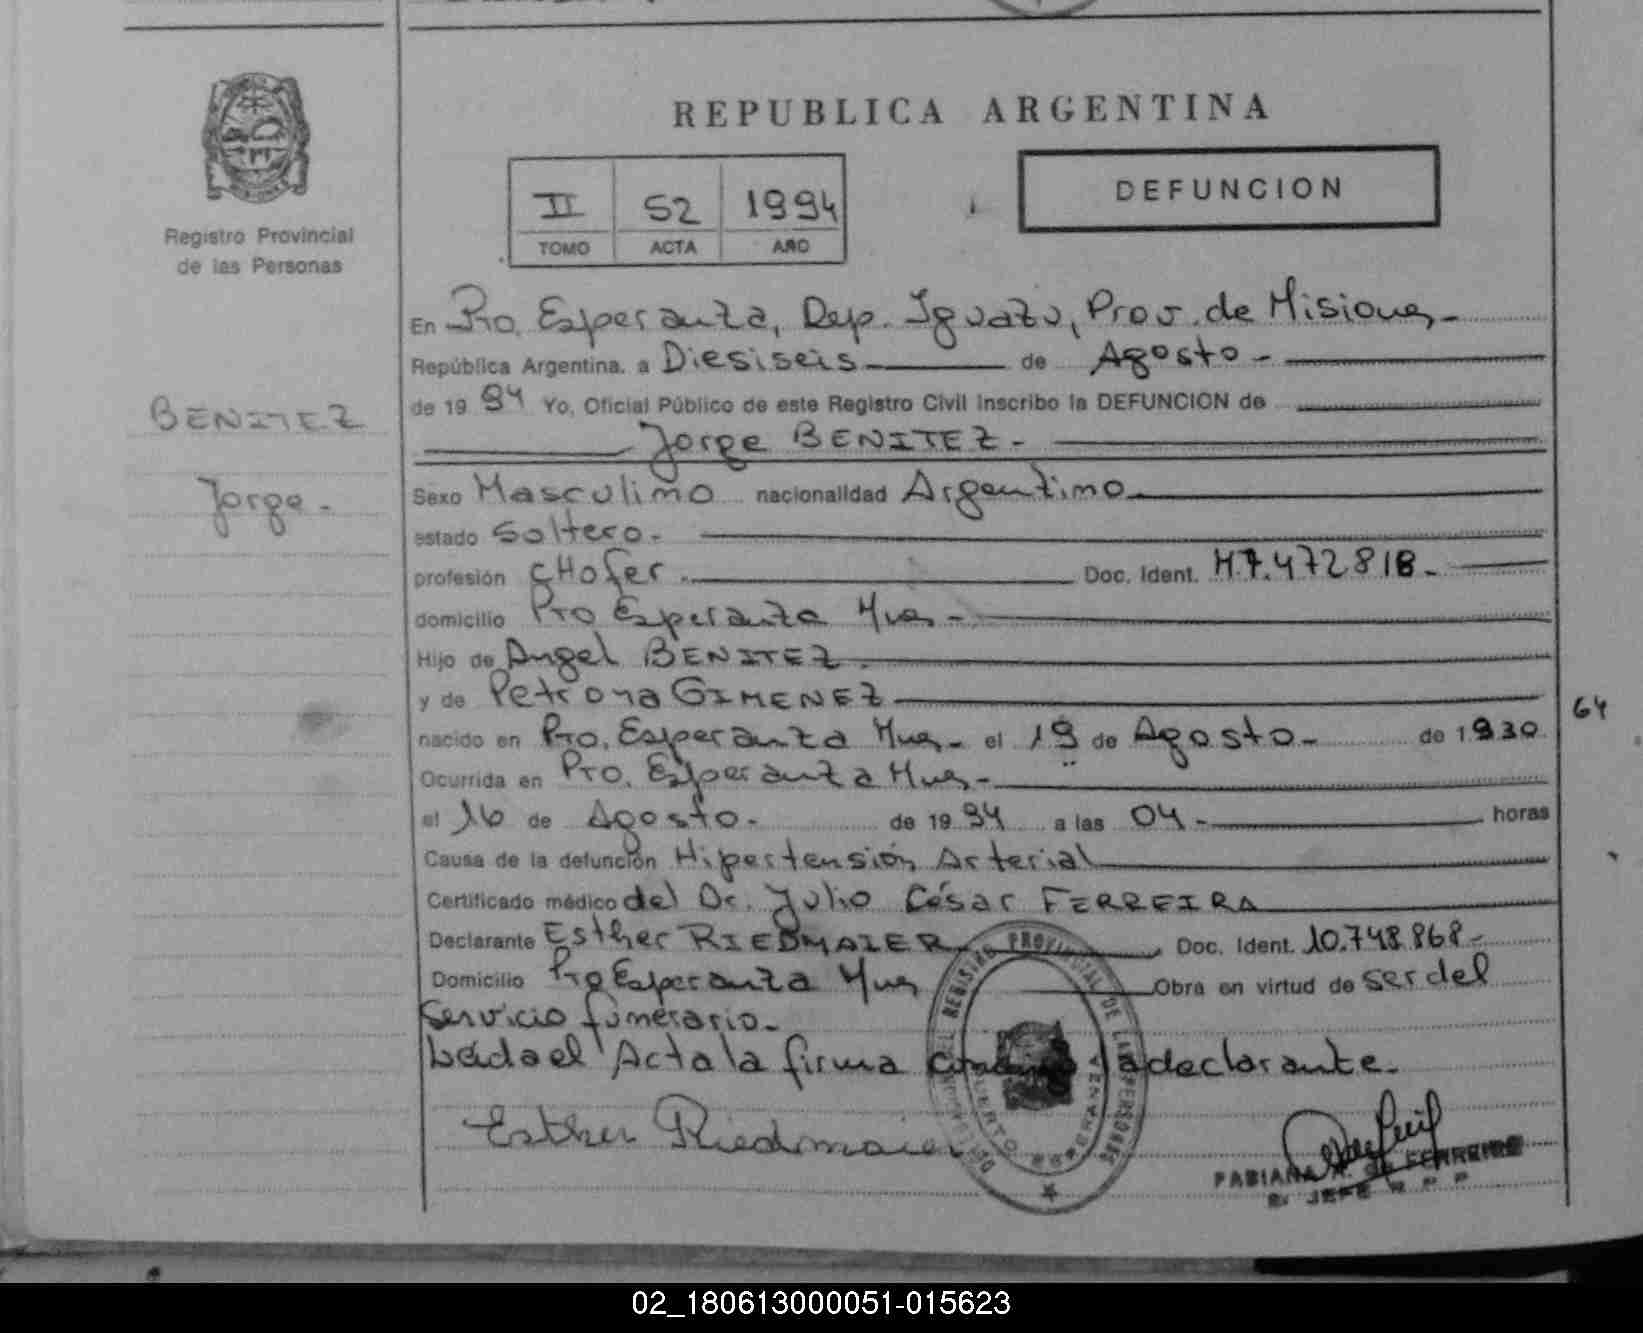 REPUBLICA ARGENTINA
DEFUNCION
II 52 1994
TOMO ACTA AÑO
Registro Provincial
de las Personas
BENITEZ
Jorge.-
En Pto. Esperanza, Dep. Iguazu, Prov. de Misiones-
República Argentina, a Diesiseis de Agosto-
de 1994 Yo, Oficial Público de este Registro Civil inscribo la DEFUNCION de
Jorge BENITEZ.-
Sexo Masculino nacionalidad Argentino
estado Soltero.-
profesión CHofer. Doc. Ident. M.7.472818.-
domicilio Pto Esperanza Mnes.-
Hijo de Angel BENITEZ.
y de Petrona GIMENEZ
nacido en Pto. Esperanza Mnes.- el 19 de Agosto- de 1930
64
Ocurrida en Pto. Esperanza Mnes-
el 16 de Agosto.- de 1994 a las 04- horas
Causa de la defunción Hipertensión Arterial
Certificado médico del Dr. Julio César FERREIRA
Declarante Esther RIEDMAIER Doc. Ident. 10.748.868-
Domicilio Pto Esperanza Mnes Obra en virtud de ser del
Servicio funerario.-
Leida el Acta la firma la declarante.
Esther Riedmaier
REGISTRO PROVINCIAL DE LAS PERSONAS
PUERTO ESPERANZA
FABIANA DE FERREIRA
JEFE R P P
02_180613000051-015623